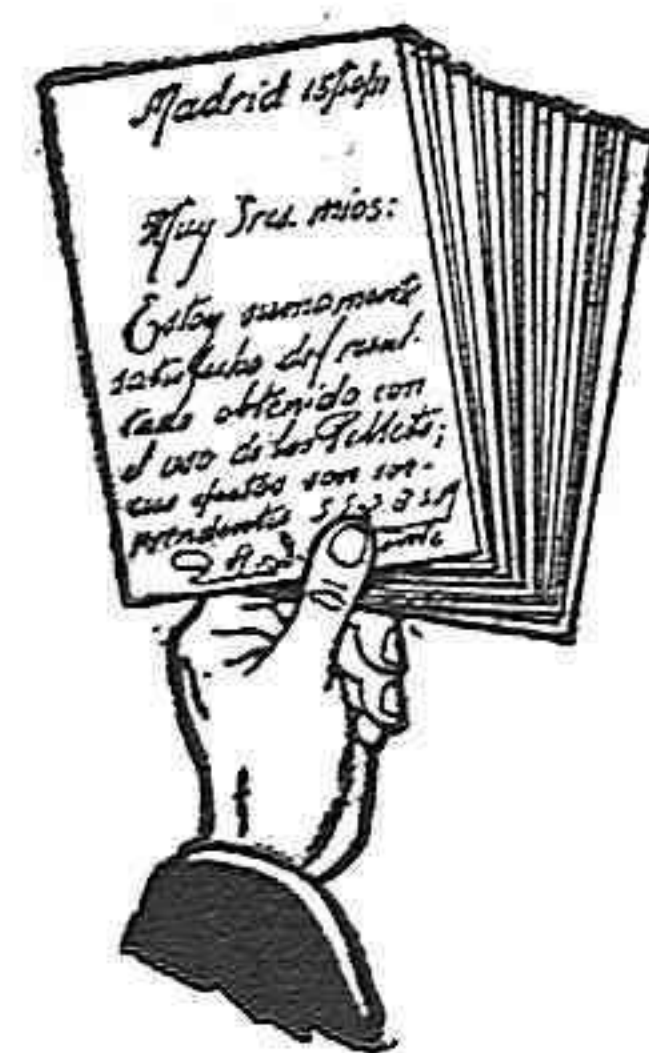 Madrid
Muy Sres. mios:
Estoy sumamente
satisfecho del resul-
tado obtenido con
el uso de los Pellets;
sus efectos son sor-
prendentes